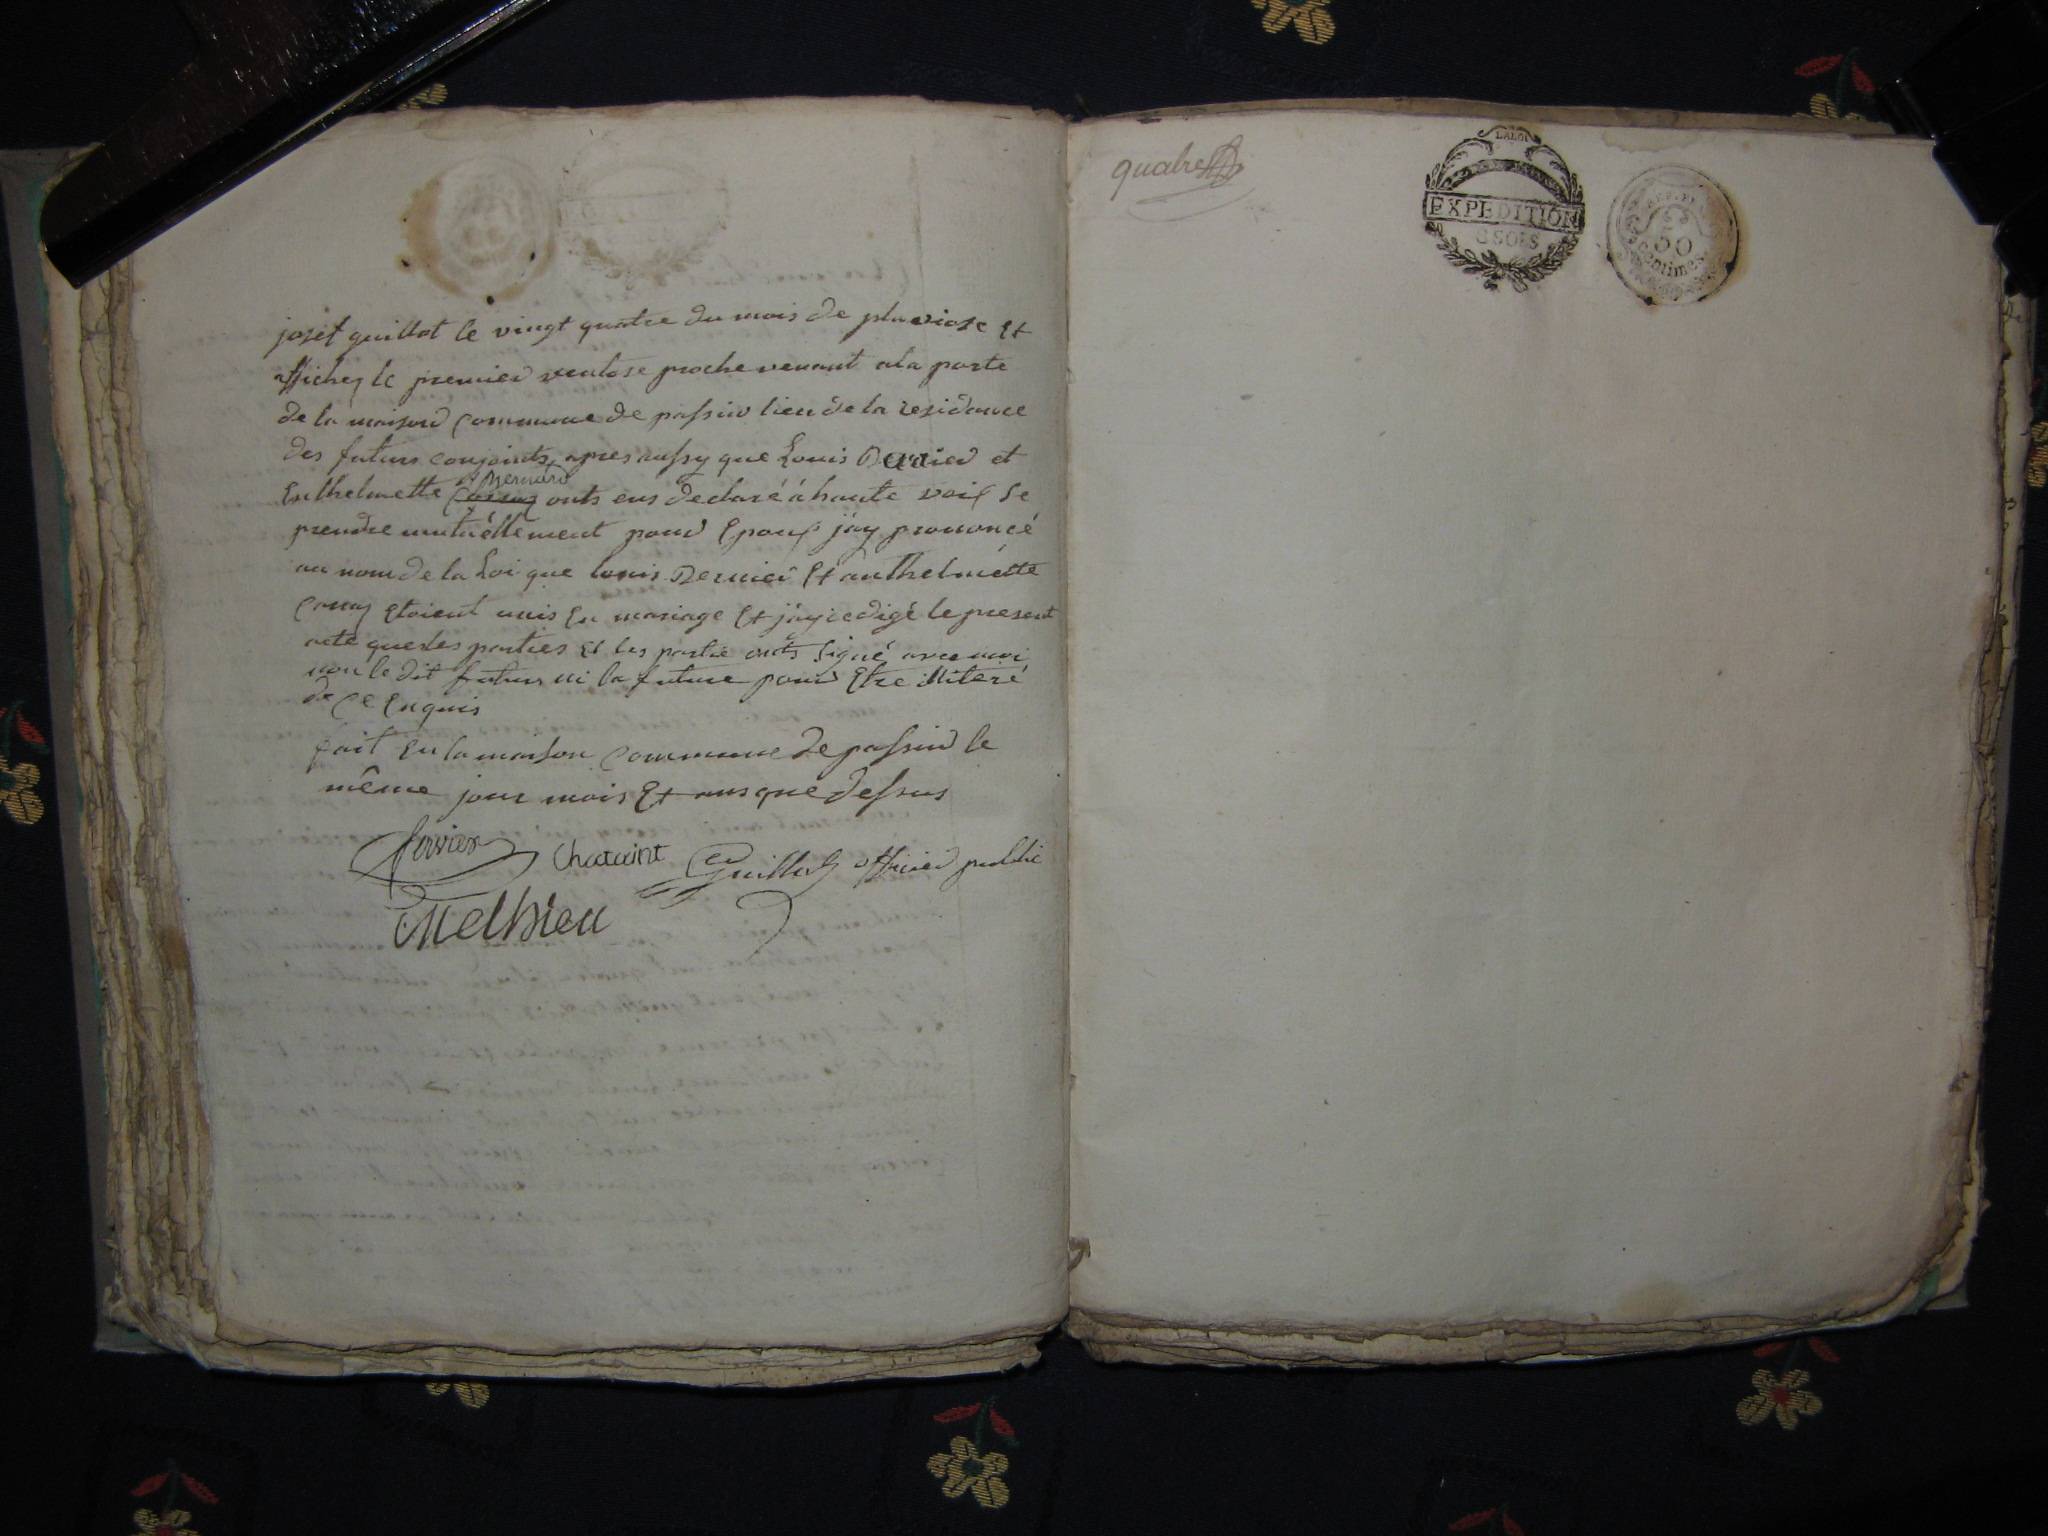 josef guillot le vingt quatre du mois de pluviose Et
affichez le premier ventose proche venant ala porte
de la maison commune de passin lieu de la residance
des futurs conjoints, apres aussy que Louis Dernier et
Enthelmette Bernard onts eus declaré à haute voix se
prendre mutuéllement pour Epoux j'ay prononcé
au nom de la Loi que louis Dernier Et anthelmétte
Etoient unis En mariage Et j'ay redigé le present
acte que les parties Et les partie onts signé avec moi
non le dit futur ni la future pour Etre illiteré
de ce Enquis
fait En la maison commune de passin le
même jour mois Et ans que dessus
Chataint Guillot officier public
Methieu
quatre
LA LOI
EXPEDITION
6 SOLS
REP. FR
50
Centimes